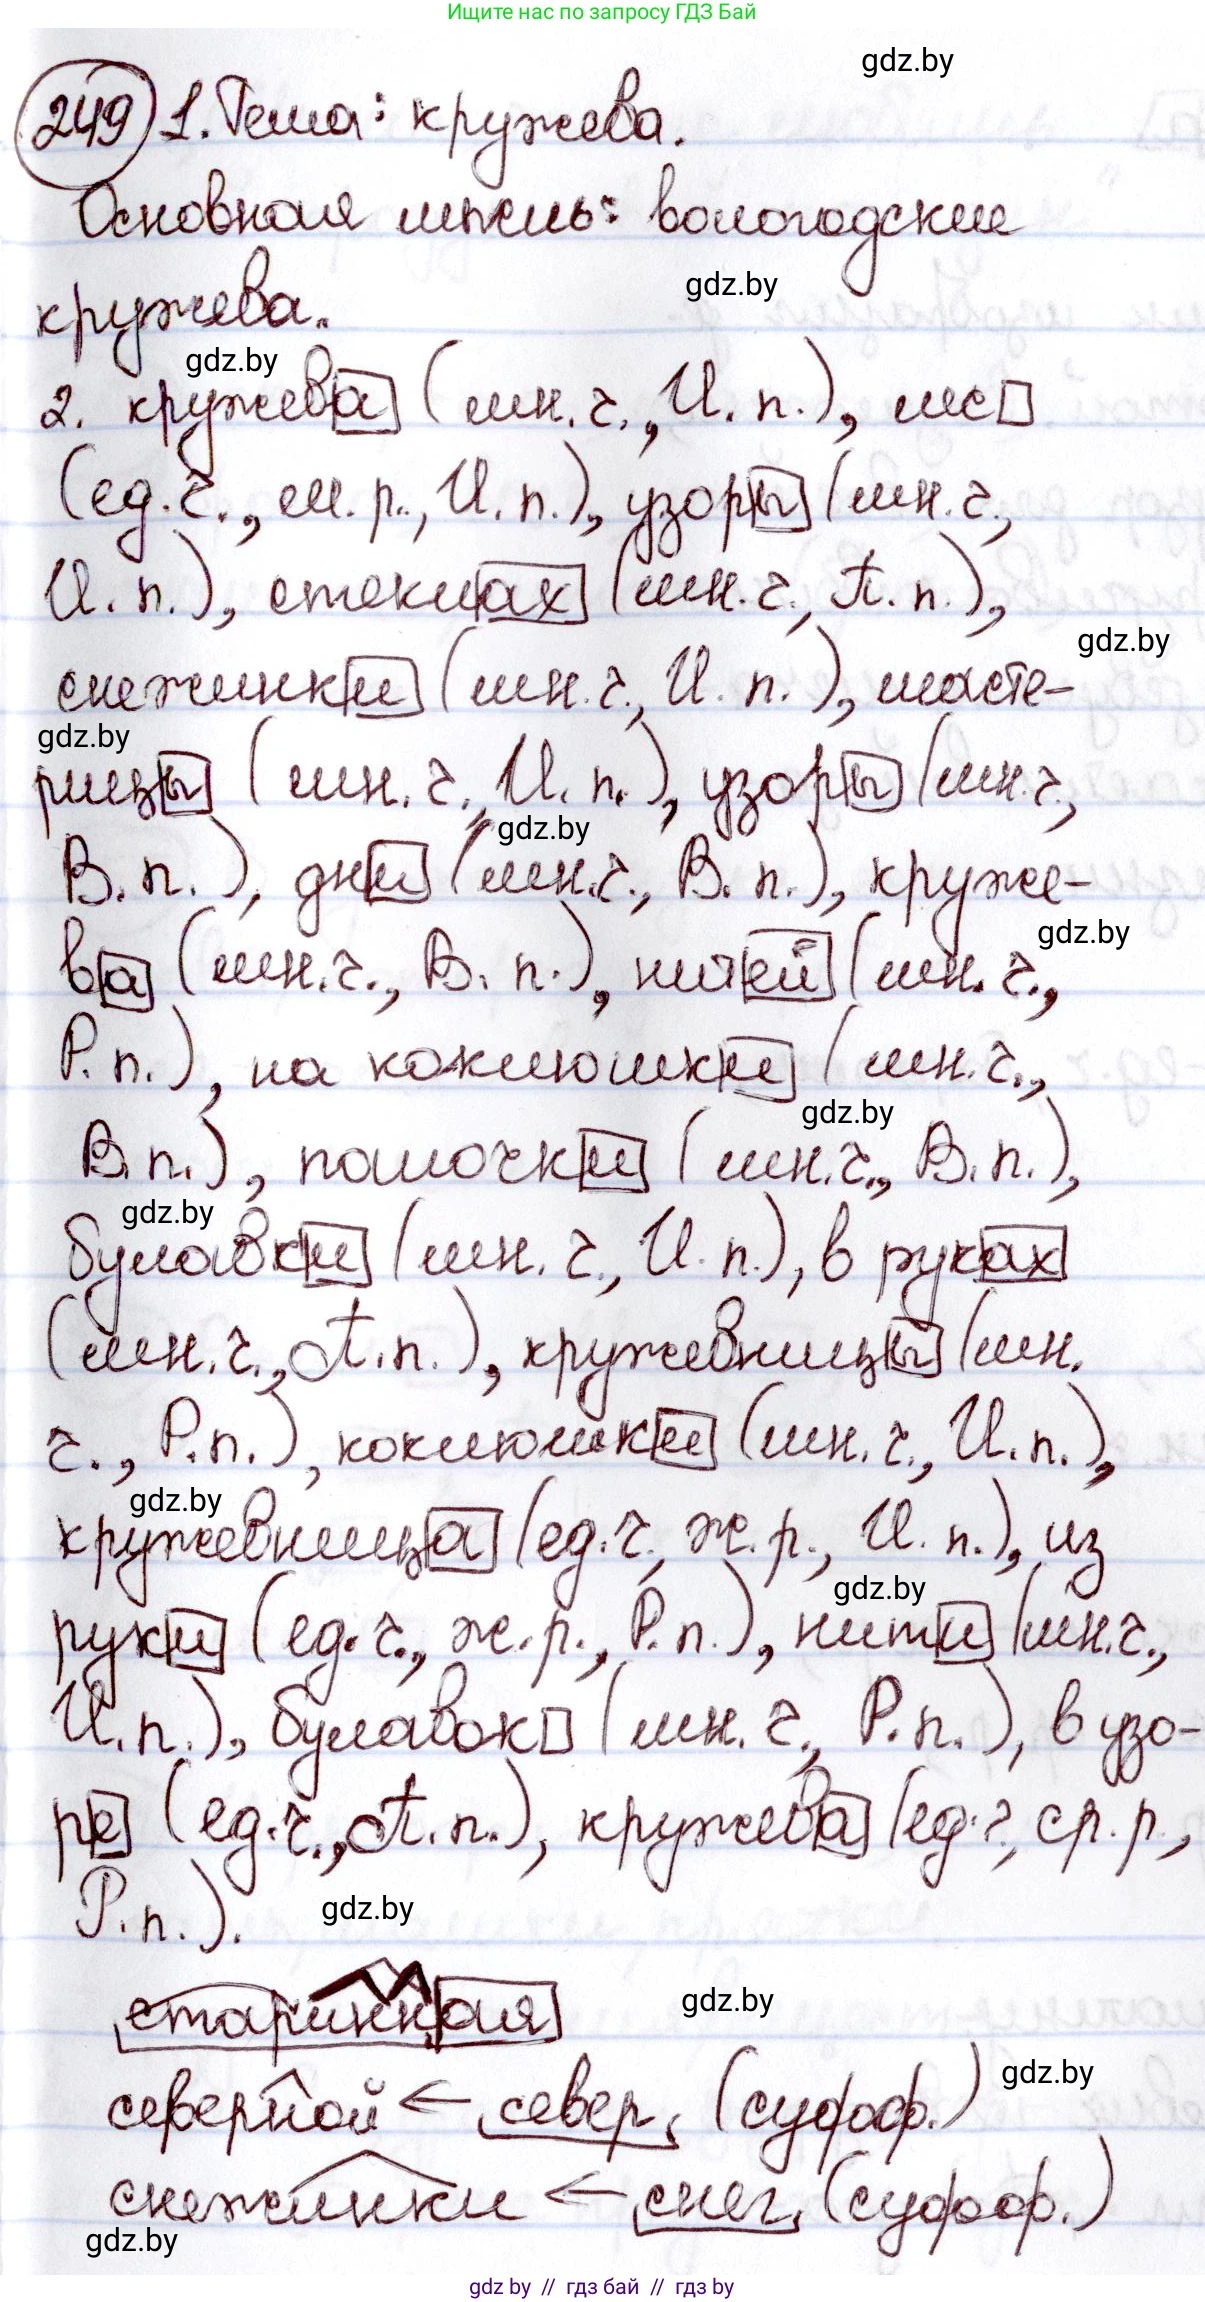 Ищите нас по запросу ГДЗ Бай
gdz.by
249 1. Тема: кружева.
Основная мысль: вологодские
gdz.by
кружева.
gdz.by
2. кружева (мн. ч., И. п.), лес
(ед. ч., м. р., И. п.), узоры (мн. ч.,
И. п.), стеклах (мн. ч., П. п.),
gdz.by
снежинки (мн. ч., И. п.), масте-
gdz.by
рицы (мн. ч., И. п.), узоры (мн. ч.,
gdz.by
В. п.), дни (мн. ч., В. п.), круже-
gdz.by
ва (мн. ч., В. п.), нитей (мн. ч.,
Р. п.), на коклюшки (мн. ч.,
gdz.by
В. п.), палочки (мн. ч., В. п.),
gdz.by
булавки (мн. ч., И. п.), в руках
(мн. ч., П. п.), кружевницы (мн.
ч., Р. п.), коклюшки (мн. ч., И. п.),
gdz.by
кружевница (ед. ч., ж. р., И. п.), из
gdz.by
руки (ед. ч., ж. р., Р. п.), нити (мн. ч.,
И. п.), булавок (мн. ч., Р. п.), в узо-
ре (ед. ч., П. п.), кружева (ед. ч., ср. р.,
Р. п.).
gdz.by
старинная
gdz.by
gdz.by
северной ← север (суфф.)
снежинки ← снег (суфф.)
gdz.by
gdz by // гдз бай // гдз by